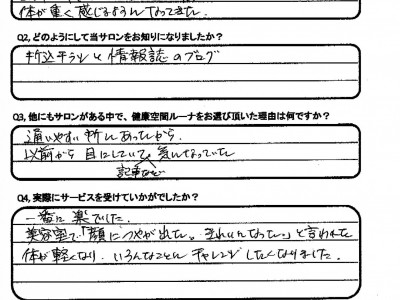 体が重く感じるようになってきた。
Q2, どのようにして当サロンをお知りになりましたか？
折込チラシと情報誌のブログ
Q3, 他にもサロンがある中で、健康空間ルーナをお選び頂いた理由は何ですか？
通いやすい所にあったから。
以前から目にしていて、気になっていた
記事など
Q4, 実際にサービスを受けていかがでしたか？
一番に楽でした。
美容室で「顔につやが出た。きれいになった。」と言われた
体が軽くなり、いろんなことにチャレンジしたくなりました。